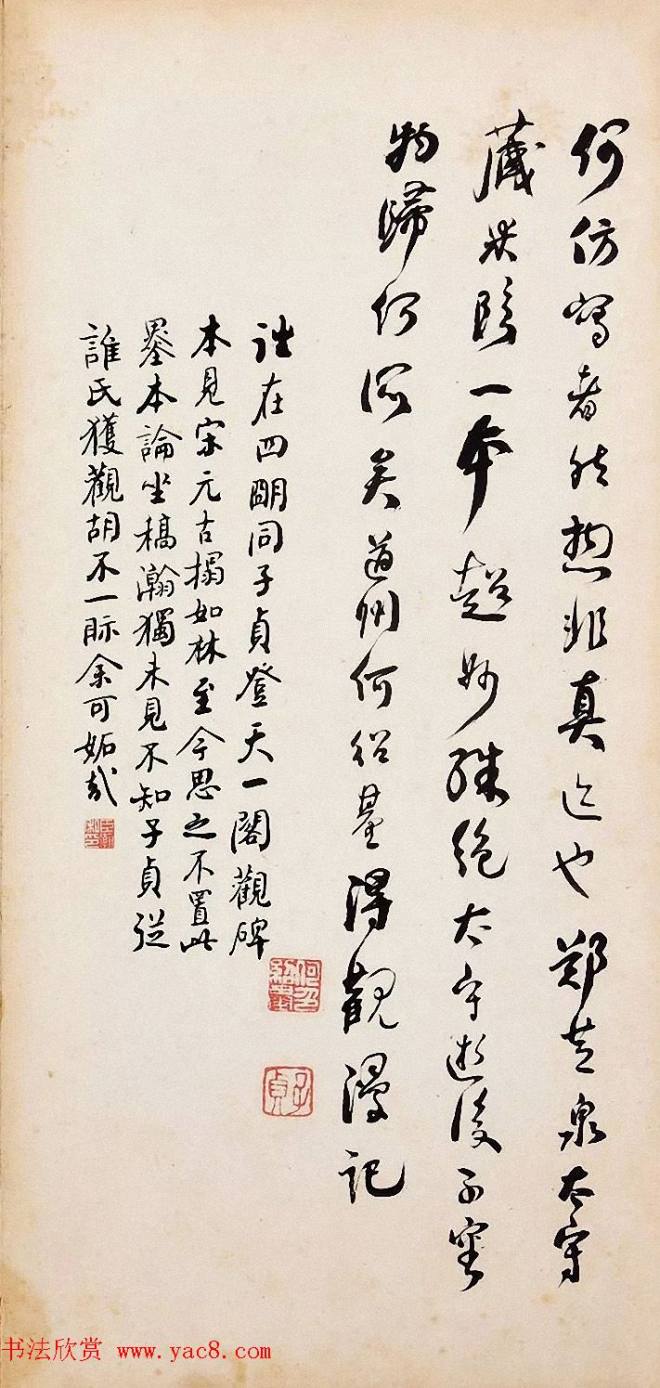 何仿寫者然想非真迹也鄭芝泉太守
藏米臨一本超妙殊絕太守逝後不審
物歸何所矣道州何紹基得觀漫記
詘在四明同子貞登天一閣觀碑
本見宋元古搨如林至今思之不置此
墨本論坐稿瀚獨未見不知子貞從
誰氏獲觀胡不一眎余可妬哉
何紹基
子貞
书法欣赏 www.yac8.com